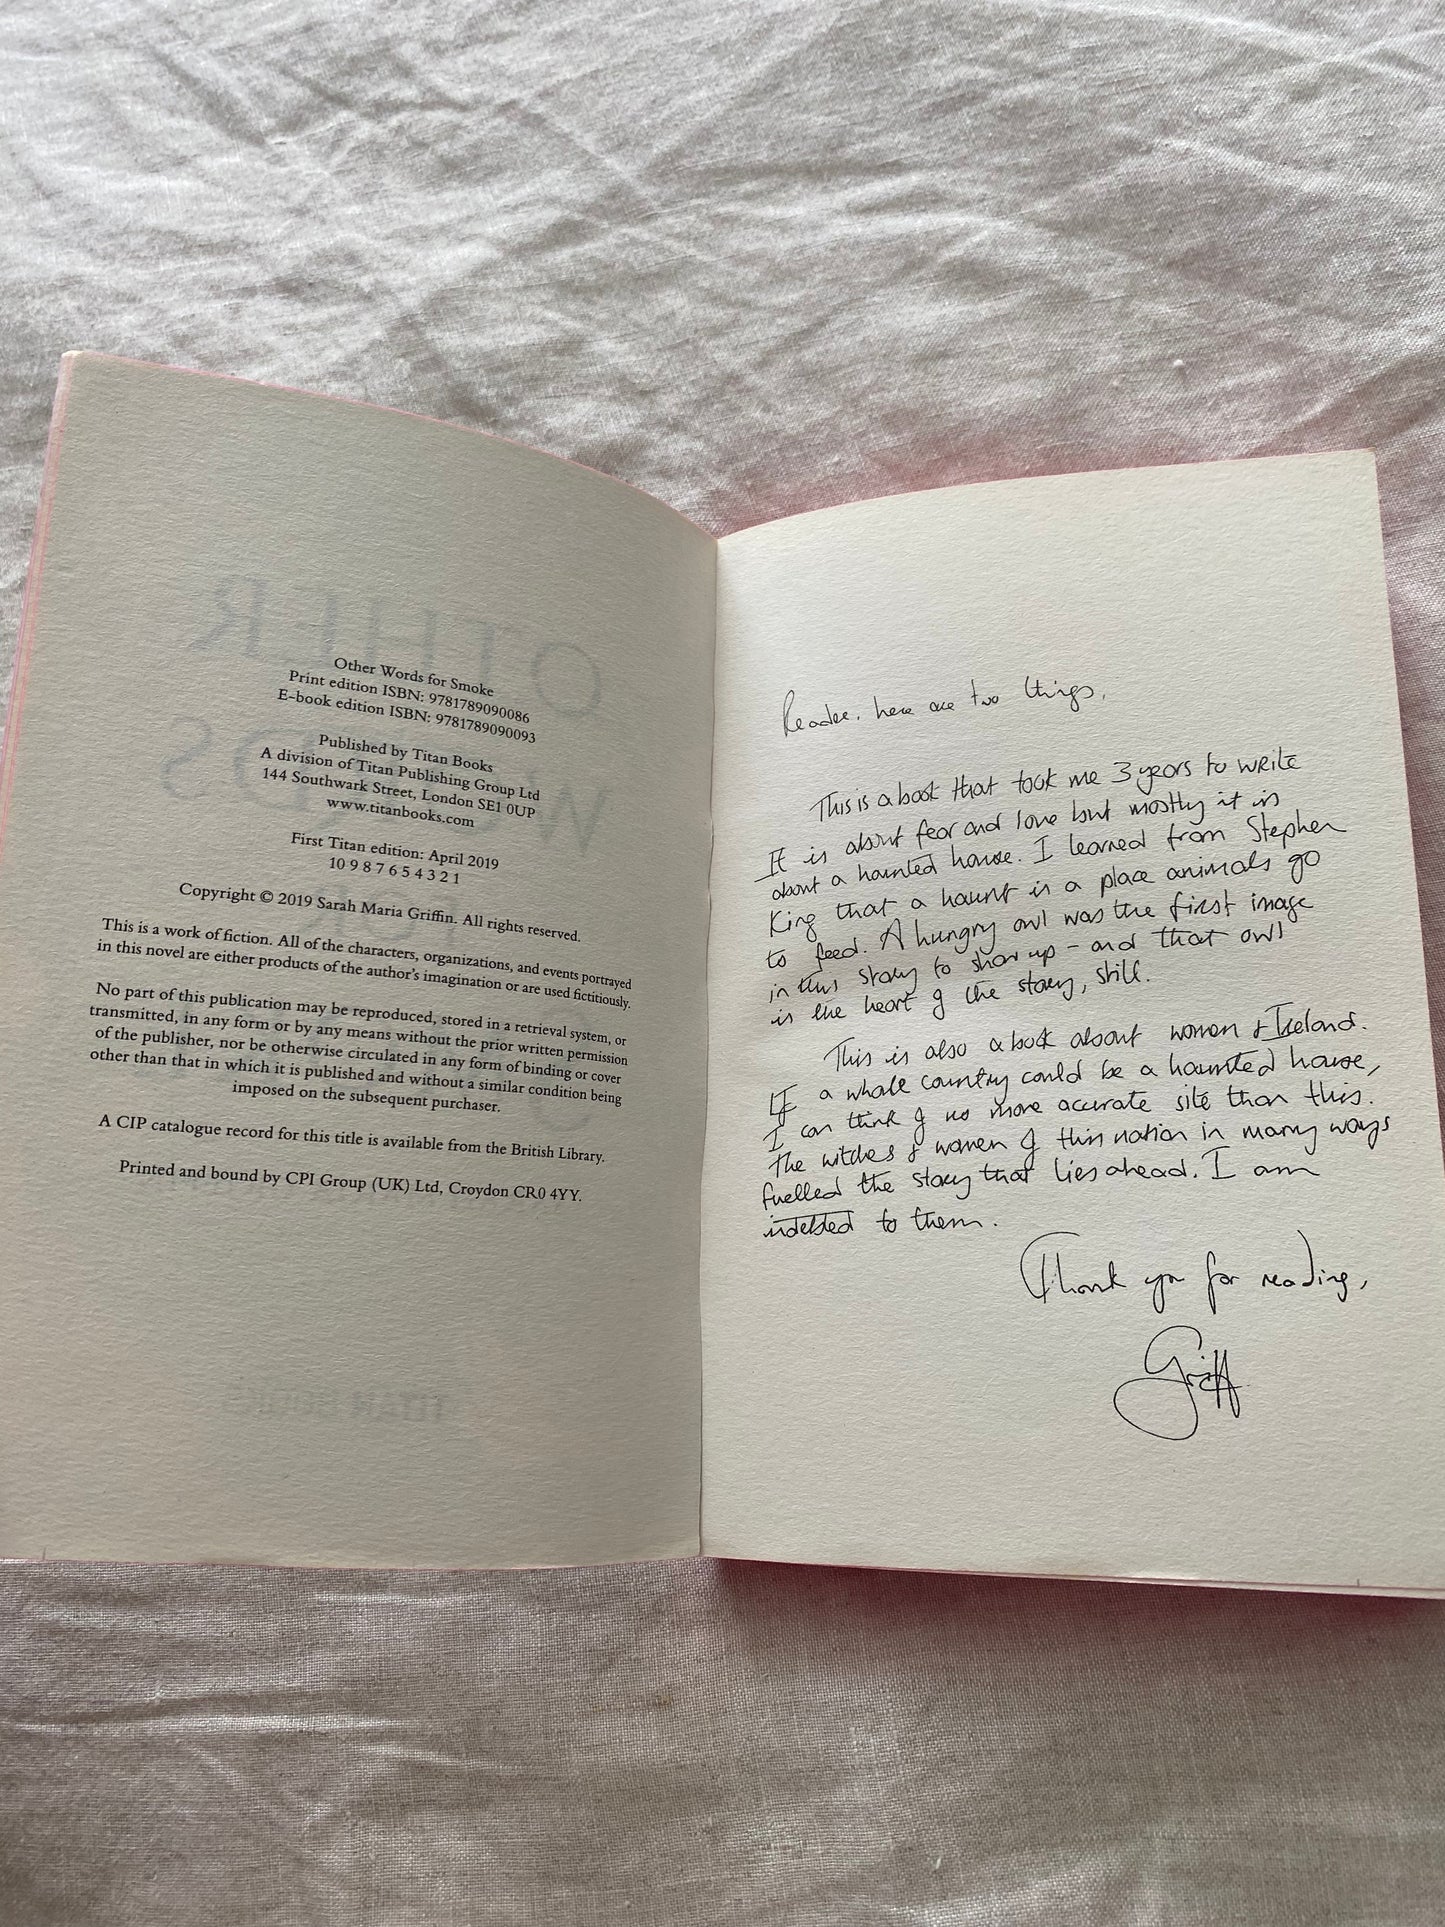 Other Words for Smoke
Print edition ISBN: 9781789090086
E-book edition ISBN: 9781789090093
Published by Titan Books
A division of Titan Publishing Group Ltd
144 Southwark Street, London SE1 0UP
www.titanbooks.com
First Titan edition: April 2019
10 9 8 7 6 5 4 3 2 1
Copyright © 2019 Sarah Maria Griffin. All rights reserved.
This is a work of fiction. All of the characters, organizations, and events portrayed
in this novel are either products of the author's imagination or are used fictitiously.
No part of this publication may be reproduced, stored in a retrieval system, or
transmitted, in any form or by any means without the prior written permission
of the publisher, nor be otherwise circulated in any form of binding or cover
other than that in which it is published and without a similar condition being
imposed on the subsequent purchaser.
A CIP catalogue record for this title is available from the British Library.
Printed and bound by CPI Group (UK) Ltd, Croydon CR0 4YY.
Reader, here are two things.
This is a book that took me 3 years to write
It is about fear and love but mostly it is
about a haunted house. I learned from Stephen
King that a haunt is a place animals go
to feed. A hungry owl was the first image
in this story to show up - and that owl
is the heart of the story, still.
This is also a book about women & Ireland.
If a whole country could be a haunted house,
I can think of no more accurate site than this.
The witches & women of this nation in many ways
fuelled the story that lies ahead. I am
indebted to them.
Thank you for reading,
Griff